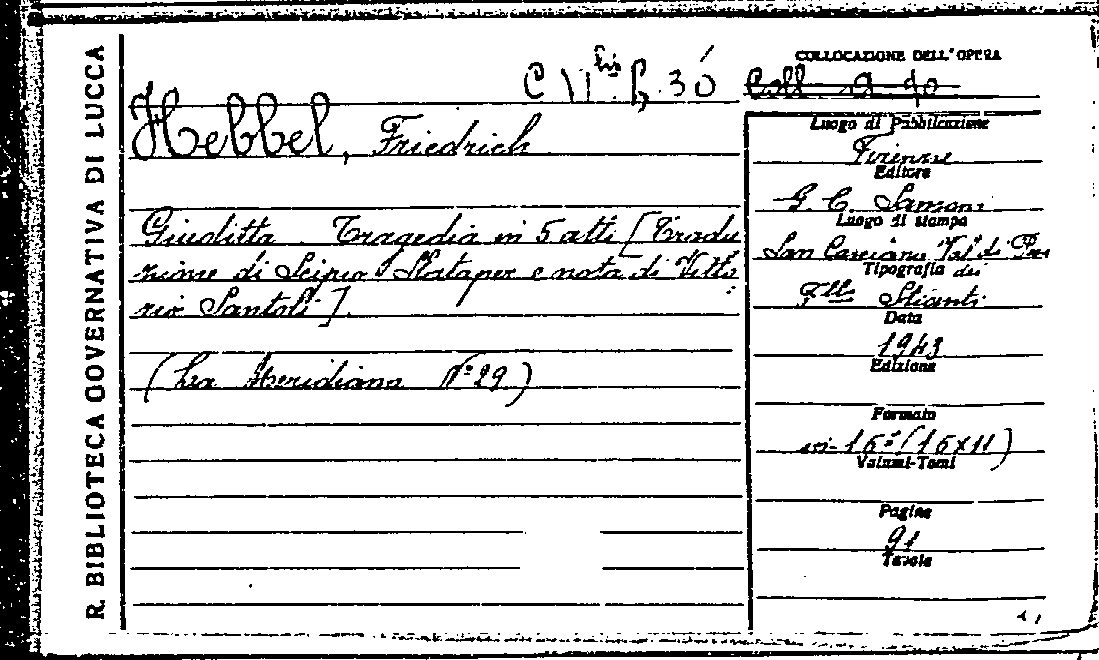 R. BIBLIOTECA GOVERNATIVA DI LUCCA
COLLOCAZIONE DELL'OPERA
Hebbel, Friedrich
Giuditta. Tragedia in 5 atti [Tradu
zione di Scipio Slataper e nota di Vitto
rio Santoli].
(La Meridiana N.º 29)
Luogo di Pubblicazione
Firenze
Editore
G. C. Sansoni
Luogo di stampa
San Casciano Val di Pesa
Tipografia dei
F.lli Stianti
Data
1943
Edizione
Formato
in-16º (16x11)
Volumi-Tomi
Pagine
91
Tavole